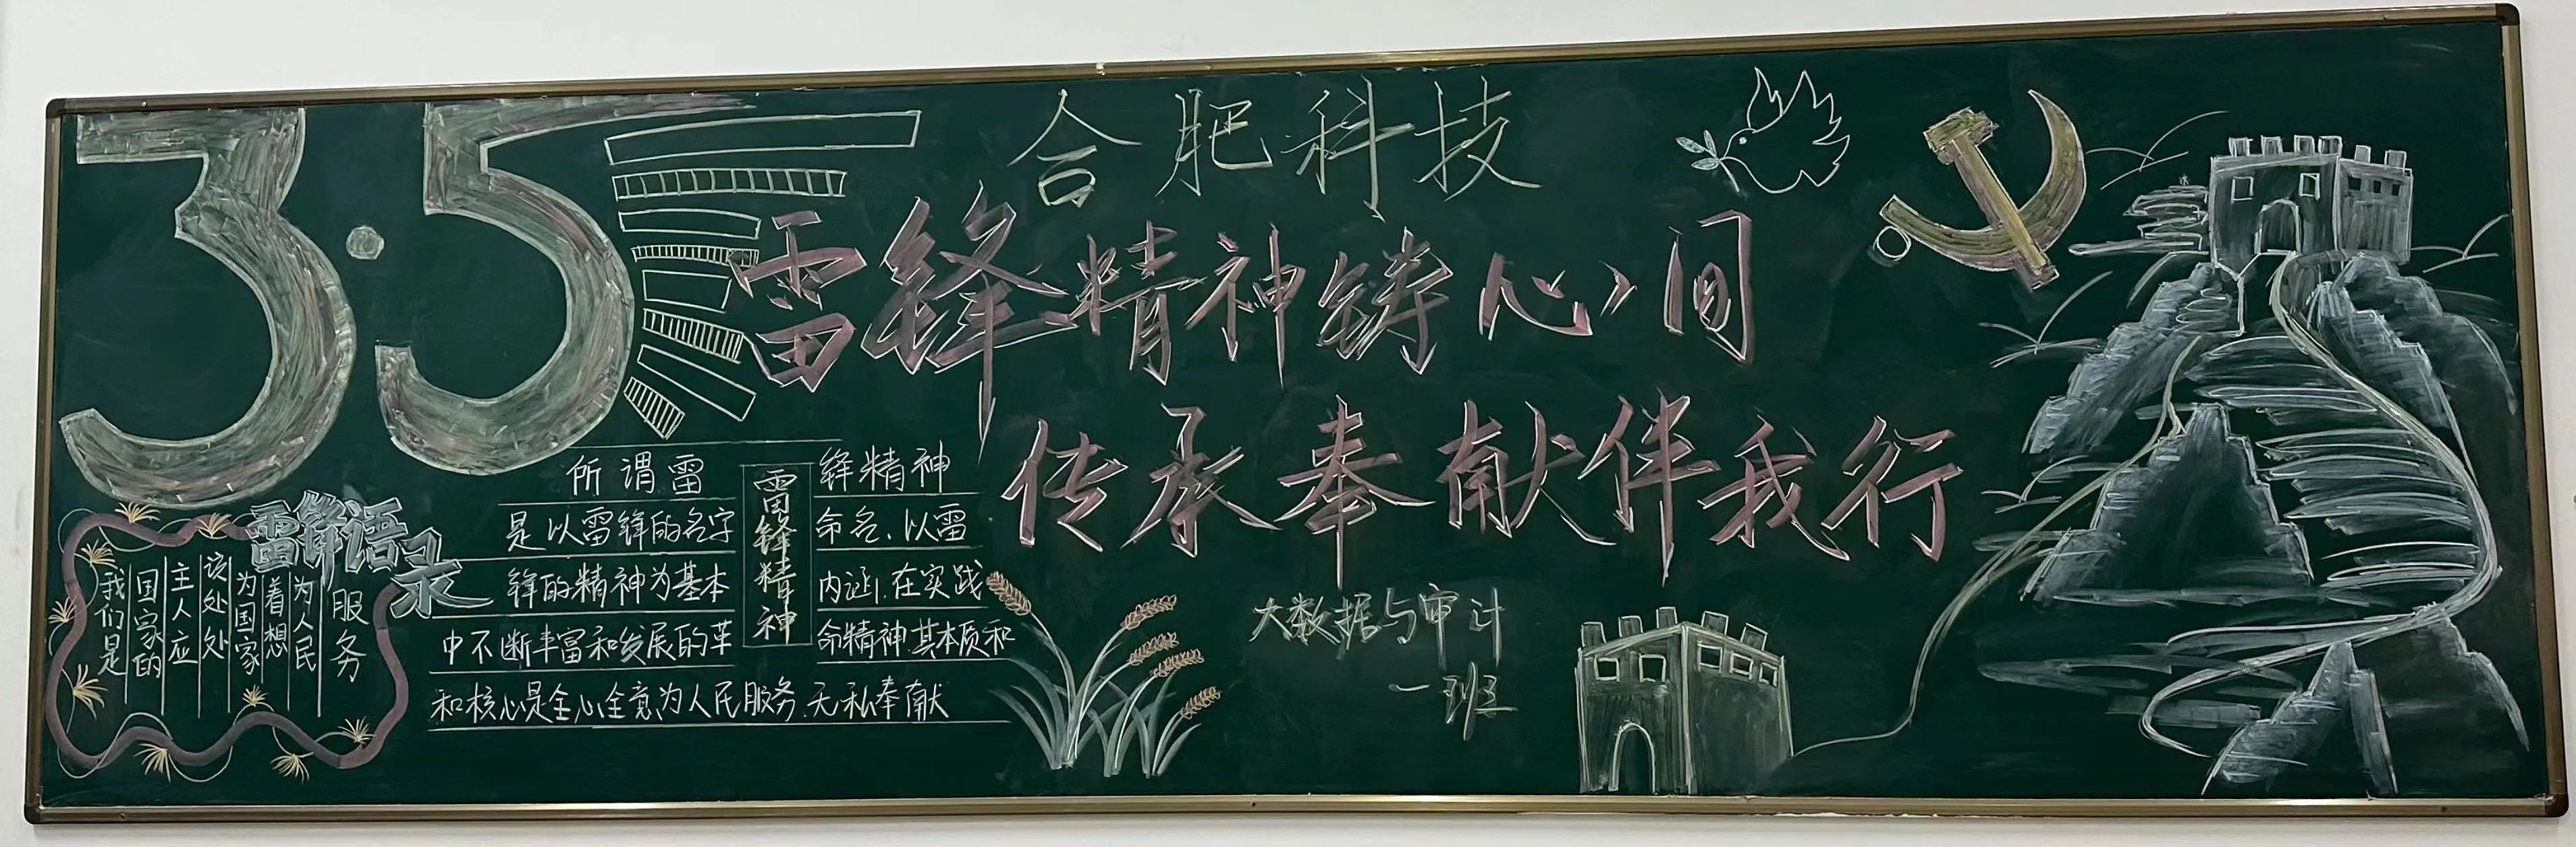 3·5
合肥科技
雷锋精神铸心间
传承奉献伴我行
雷锋语录
我们是
国家的
主人应
该处处
为国家
着想
为人民
服务
雷锋精神
所谓雷锋精神
是以雷锋的名字命名、以雷
锋的精神为基本内涵、在实践
中不断丰富和发展的革命精神.其本质和
和核心是全心全意为人民服务、无私奉献
大数据与审计
一班